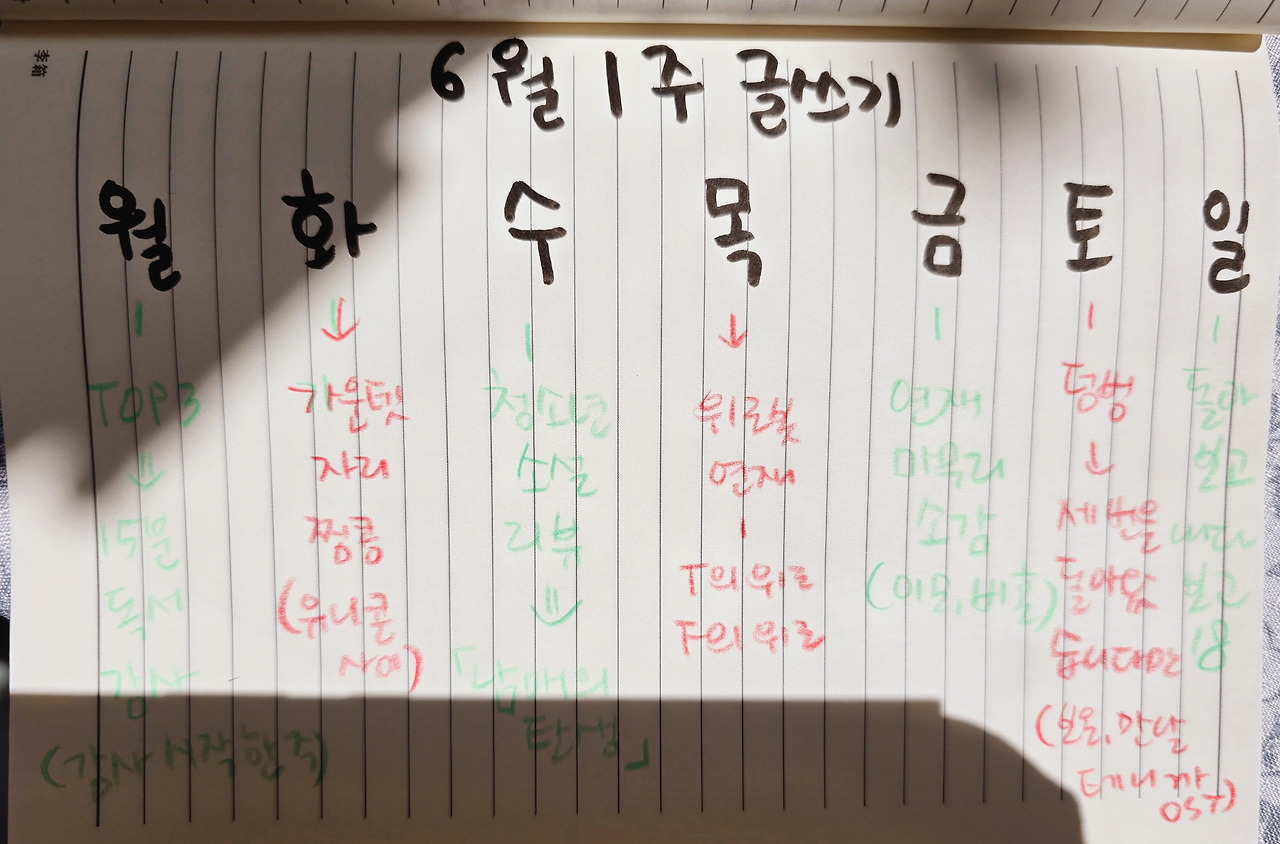 6월 1주 글쓰기
월 화 수 목 금 토 일
TOP3
15분
독서
감사
(감사 시작한 적)
가운뎃
자리
찡콩
(유니콘
사여)
청소년
소설
리뷰
「남매의
탄생」
위로봇
연재
T의 위로
F의 위로
연재
마무리
소감
(이모, 비호)
텀벙
제 번을
돌아왔
습니다만
(보온, 만날
테니까
OST)
돌아
보고
내다
보고
18